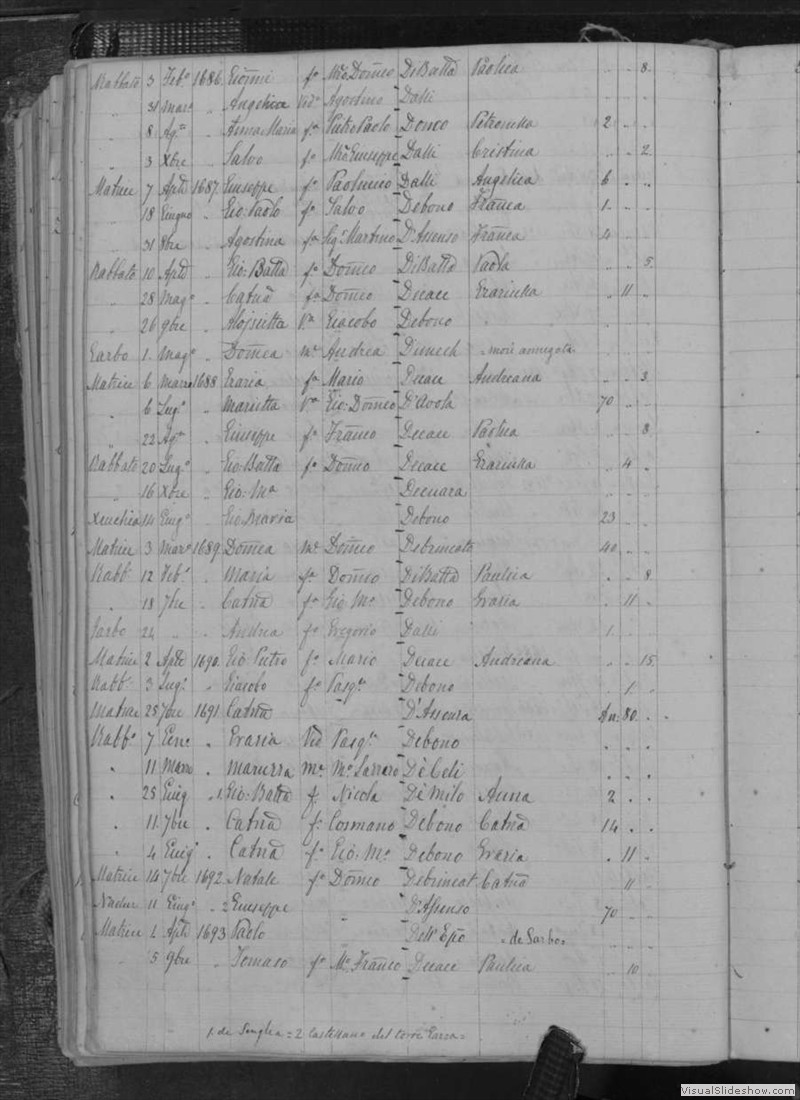 Rabbato 3 Feb.º 1686. Gioñni fº Mrº Doñeo DiBattã Paolica " " 8.
" 31 marº " Angelica Vidª Agostino Dalli " " "
" 8 Agº " Anna Maria fª Pietro Paolo Doneo Petronilla 2 " "
" 3 Xbre " Salvo fº Mrº Giuseppe Dalli Cristina " " 2.
Matrice 7 Aple 1687. Giuseppe fº Paolino Dalli Angelica 6 " "
" 18 Giugno " Gio: Paolo fº Salvo Debono Franca 1. " "
" 31 8bre " Agostina fª Sigr Martino D'Afenso Franca 4 " "
Rabbato 10 Aple " Gio: Battã fº Doñeo DiBattã Paola " " 5.
" 28 Magº " Catnã fª Doñeo Ducace Grazinlla " 11 "
" 26 9bre " Alojsetta Vª Giacobo Debono
Garbo 1. Magº " Doñeca mº Andrea Dimech " morì annegata
Matrice 6 Marzo 1688 Grazia fª Mario Ducace Andreana " " 3
" 6 Lugº " Marietta Vª Gio: Domeo D'Avola 70 " "
" 22 Agº " Giuseppe fº Franco Ducace Paolica " " 8
Rabbato 20 Lugº " Gio: Batta fº Doñeo Ducace Grazinlla " 4 "
" 16 Xbre " Gio: Mª Decuara " "
Xeuchia 14 Giugº " Gio Maria Debono 23 " "
Matrice 3 Marº 1689. Doñeca mº Doñeo Debrincat 40 " "
Rabbº 12 Febº " Maria fª Doñeo DiBattã Paulica " " 8
" 18 7bre " Catnã fª Gio Mª Debono Grazia " 11 "
Garbo 24 " " Andrea fº Gregorio Dalli 1. " "
Matrice 2 Aple 1690. Gio Pietro fº Mario Ducace Andreana " " 15.
Rabbº 3 Lugº " Giacobo fº Pasqle Debono " 1. "
Matrice 25 7bre 1691 Catnã D'Asscura 80 " "
Rabbº 7 Gene " Grazia Vidª Pasqle Debono " " "
" 11 Marzo " Maruzza mº DeCeli " " "
" 25 Giugº 1. Gio: Battã fº Nicola DiMilo Anna 2 " "
" 11 7bre " Catnã fª Cosmano Debono Catnã 14 " "
" 4 Giugº " Catnã fª Gio: Mª Debono Grazia " 11 "
Matrice 14 7bre 1692. Natale fº Doñeo Debrincat Catnã 11 "
Nadur 11 Giugº " 2 Giuseppe " D'Afenso 70 "
Matrice 1 Aple 1693 Paolo Dell' " de Garbo "
" 5 9bre " Tomaso fº Mº Franco Ducace Paulica " 10
1. de Senglea = 2 Castellano del
VisualSlideshow.com